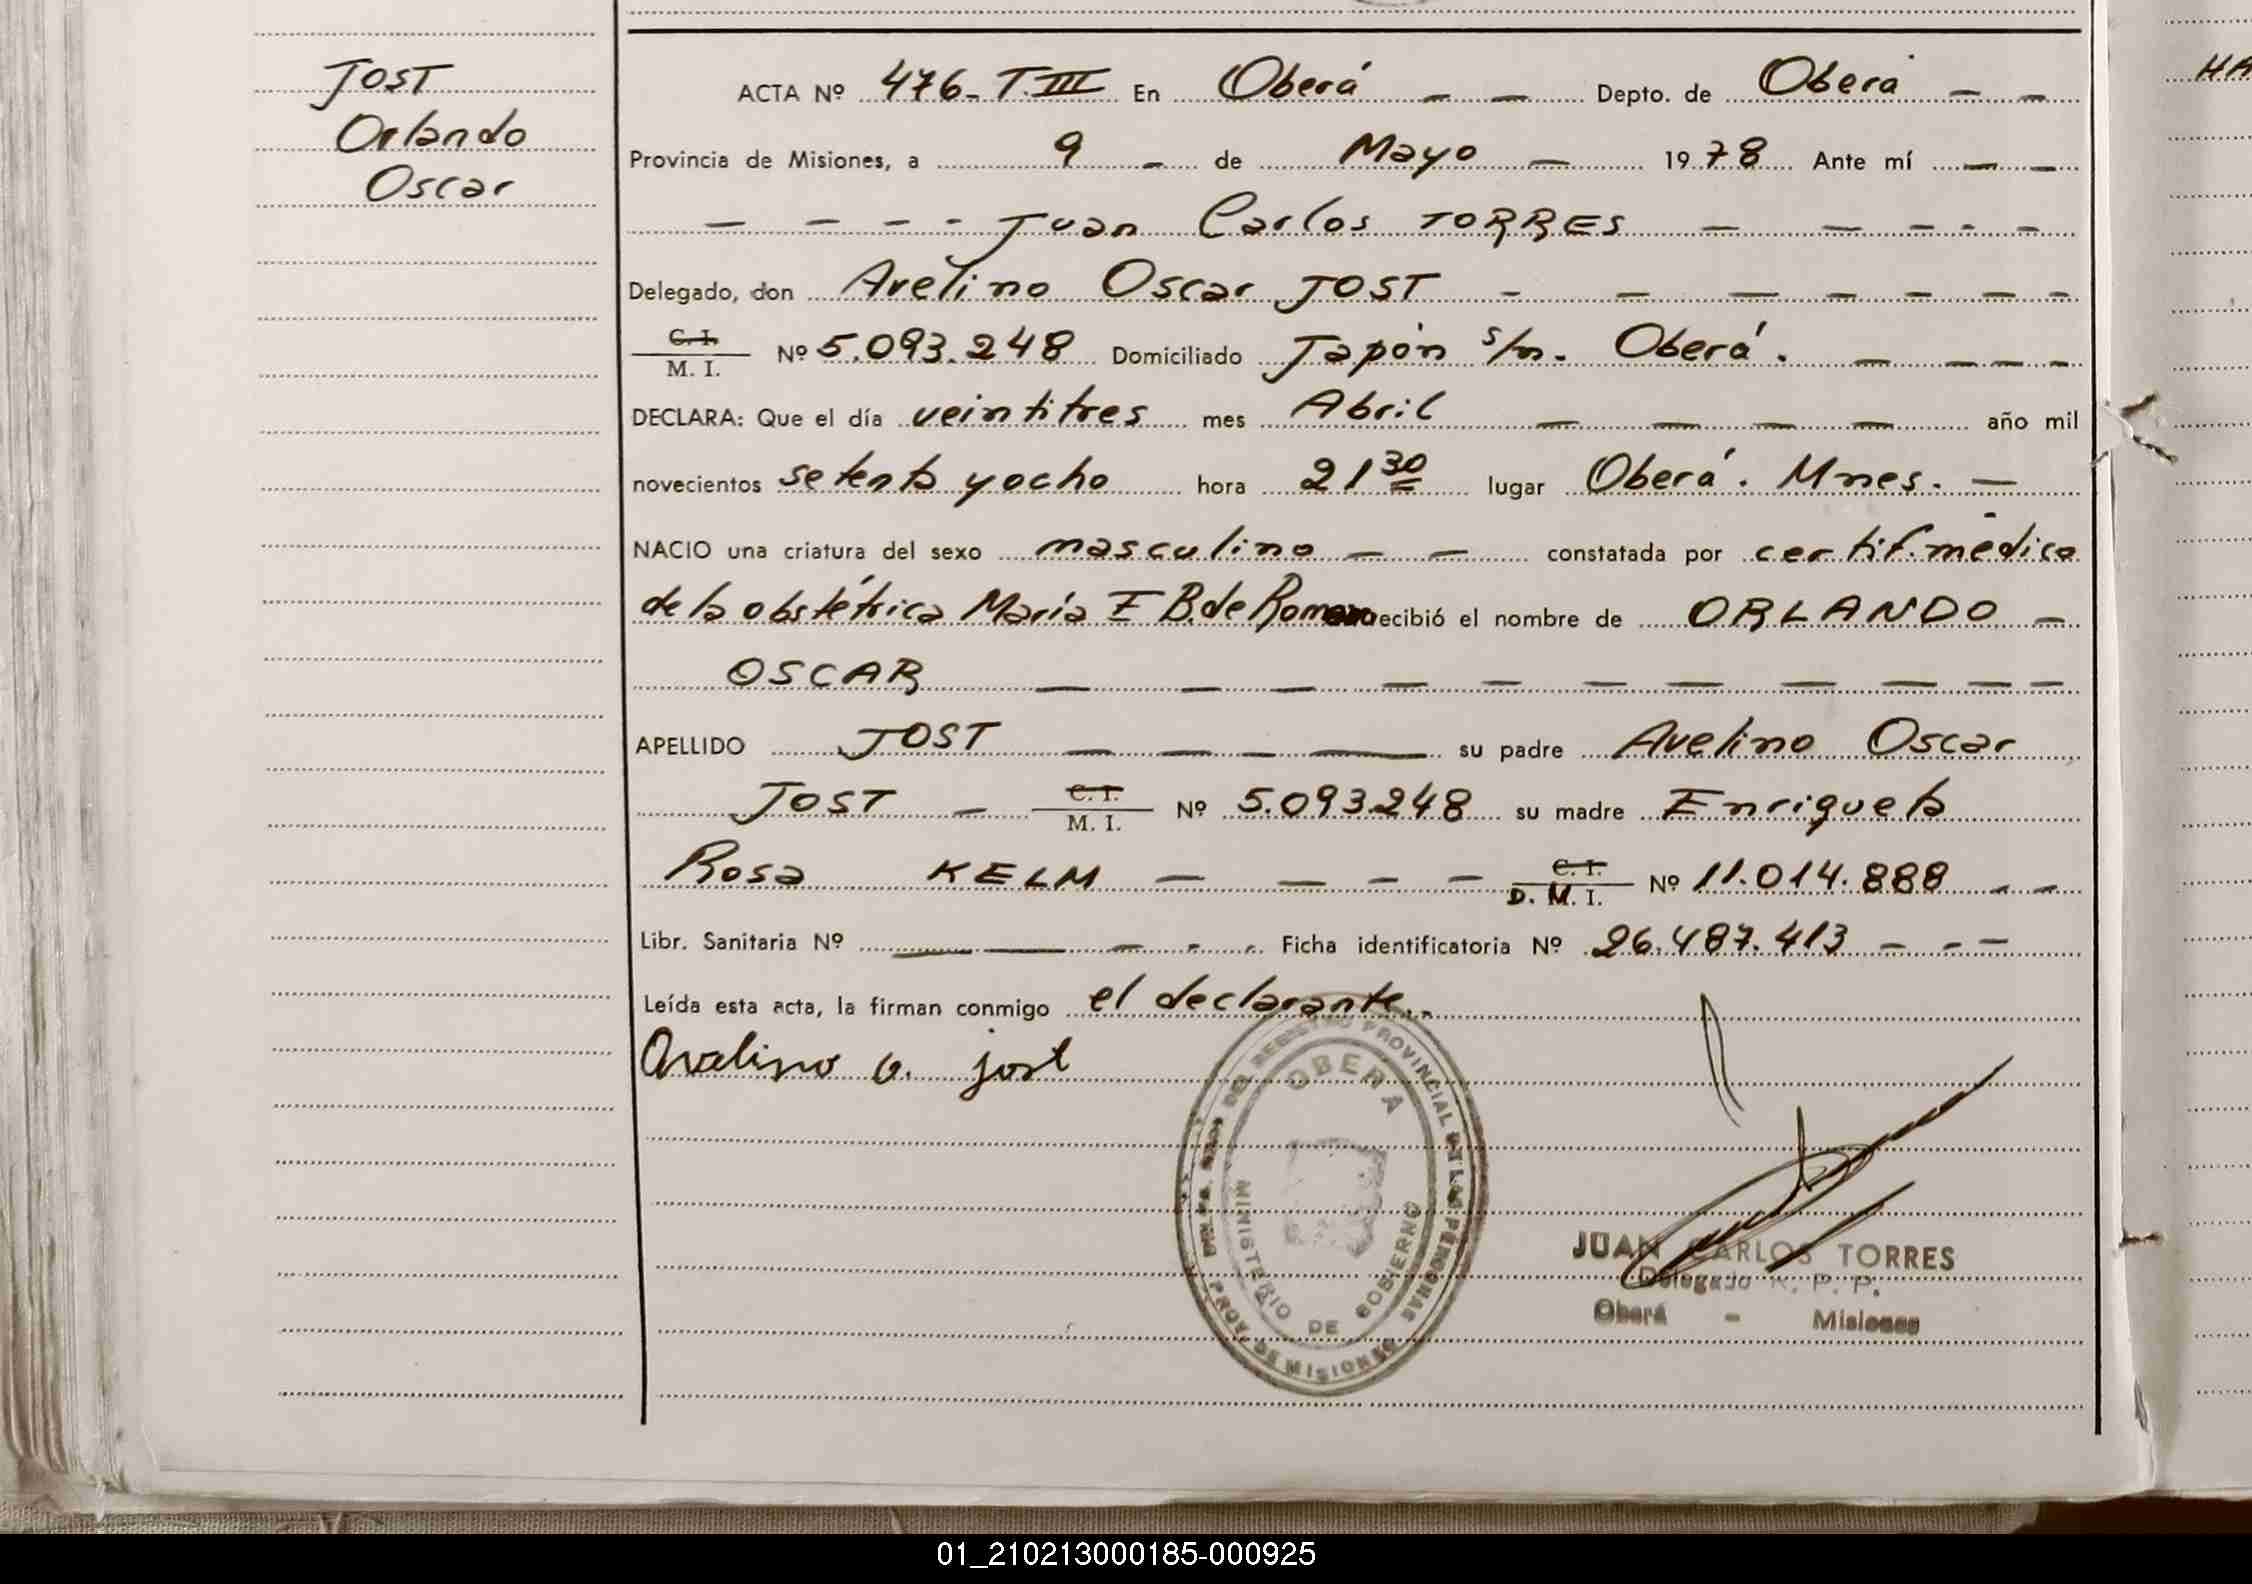 JOST
Orlando
Oscar
HA
ACTA Nº 476-T.III En Oberá Depto. de Oberá
Provincia de Misiones, a 9 de Mayo 1978 Ante mí
Juan Carlos TORRES
Delegado, don Avelino Oscar JOST
C. I.
M. I. Nº 5.093.248 Domiciliado Japón s/n. Oberá.
DECLARA: Que el día veintitres mes Abril año mil
novecientos setenta y ocho hora 21 30 lugar Oberá. Mnes.
NACIO una criatura del sexo masculino constatada por certif. médico
de la obstétrica María E B. de Romero recibió el nombre de ORLANDO
OSCAR
APELLIDO JOST su padre Avelino Oscar
JOST C. I.
M. I. Nº 5.093.248 su madre Enriqueta
Rosa KELM C. I.
D. M. I. Nº 11.014.888
Libr. Sanitaria Nº Ficha identificatoria Nº 26.487.413
Leída esta acta, la firman conmigo el declarante..
Avelino O. jost
REGISTRO PROVINCIAL DE LAS PERSONAS
OBERA
MINISTERIO DE GOBIERNO
PROV. DE MISIONES
JUAN CARLOS TORRES
Delegado R. P. P.
Oberá - Misiones
01_210213000185-000925